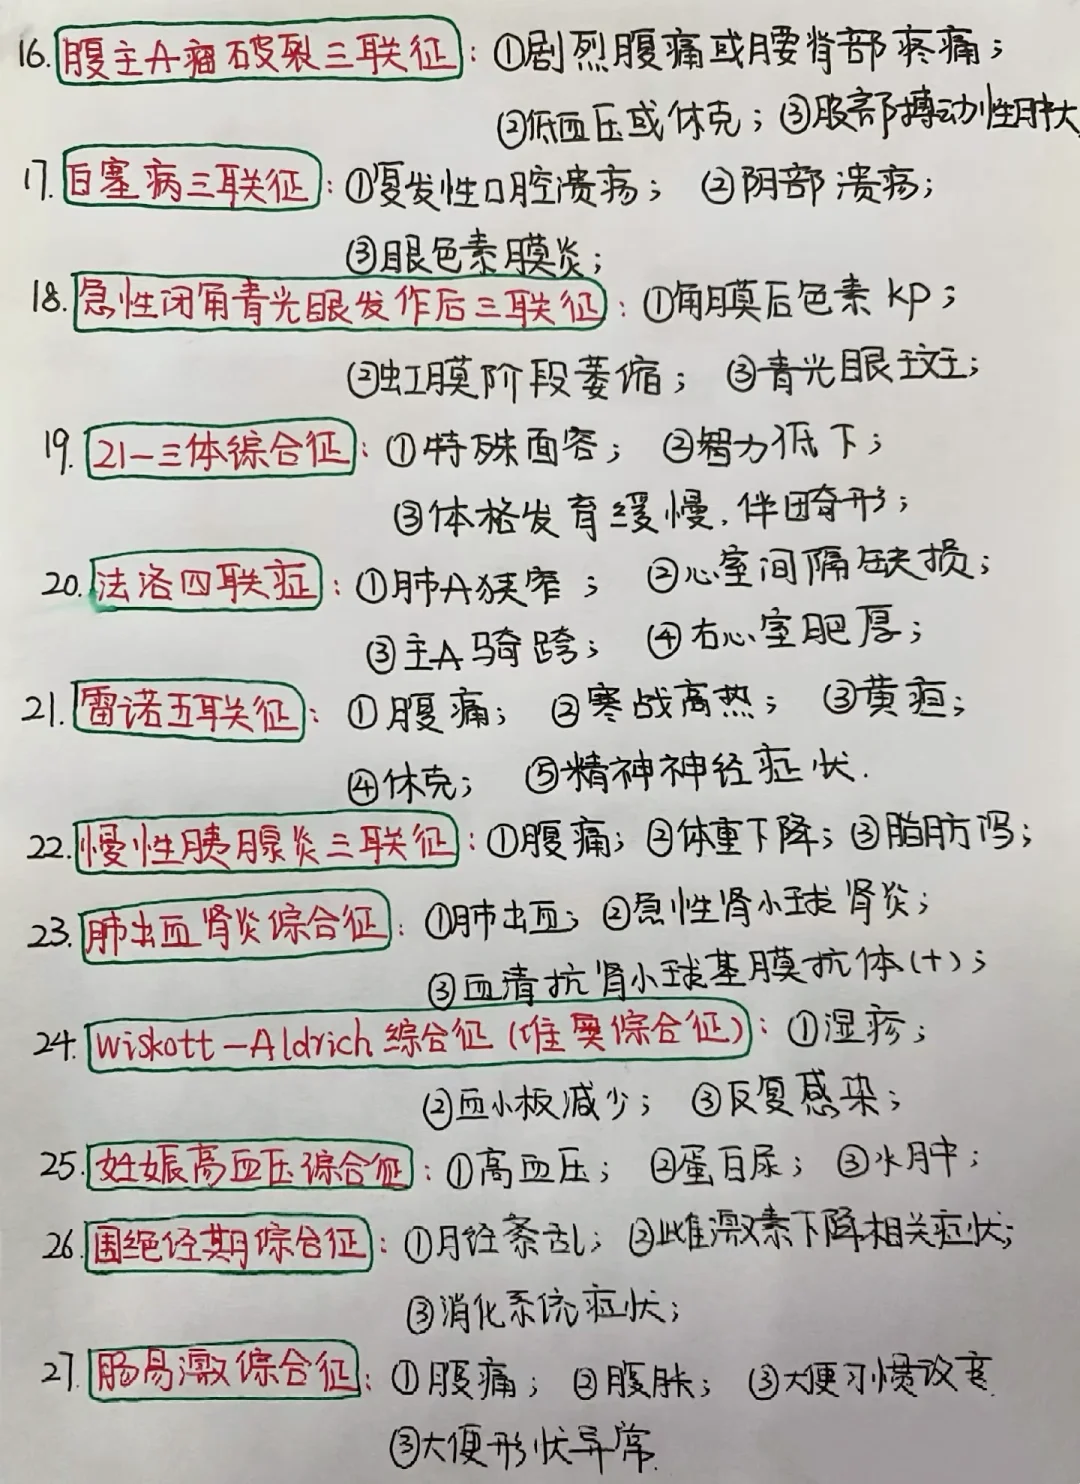 16. 腹主A瘤破裂三联征：①剧烈腹痛或腰脊部疼痛；
②低血压或休克；③股部搏动性肿大
17. 白塞病三联征：①复发性口腔溃疡；②阴部溃疡；
③眼色素膜炎；
18. 急性闭角青光眼发作后三联征：①角膜后色素kp；
②虹膜阶段萎缩；③青光眼斑；
19. 21-三体综合征：①特殊面容；②智力低下；
③体格发育缓慢，伴畸形；
20. 法洛四联症：①肺A狭窄；②心室间隔缺损；
③主A骑跨；④右心室肥厚；
21. 雷诺五联征：①腹痛；②寒战高热；③黄疸；
④休克；⑤精神神经症状.
22. 慢性胰腺炎三联征：①腹痛；②体重下降；③脂肪泻；
23. 肺出血肾炎综合征：①肺出血；②急性肾小球肾炎；
③血清抗肾小球基膜抗体(+)；
24. Wiskott-Aldrich综合征(唯奥综合征)：①湿疹；
②血小板减少；③反复感染；
25. 妊娠高血压综合征：①高血压；②蛋白尿；③水肿；
26. 围绝经期综合征：①月经紊乱；②雌激素下降相关症状；
③消化系统症状；
27. 肠易激综合征：①腹痛；②腹胀；③大便习惯改变.
③大便形状异常.